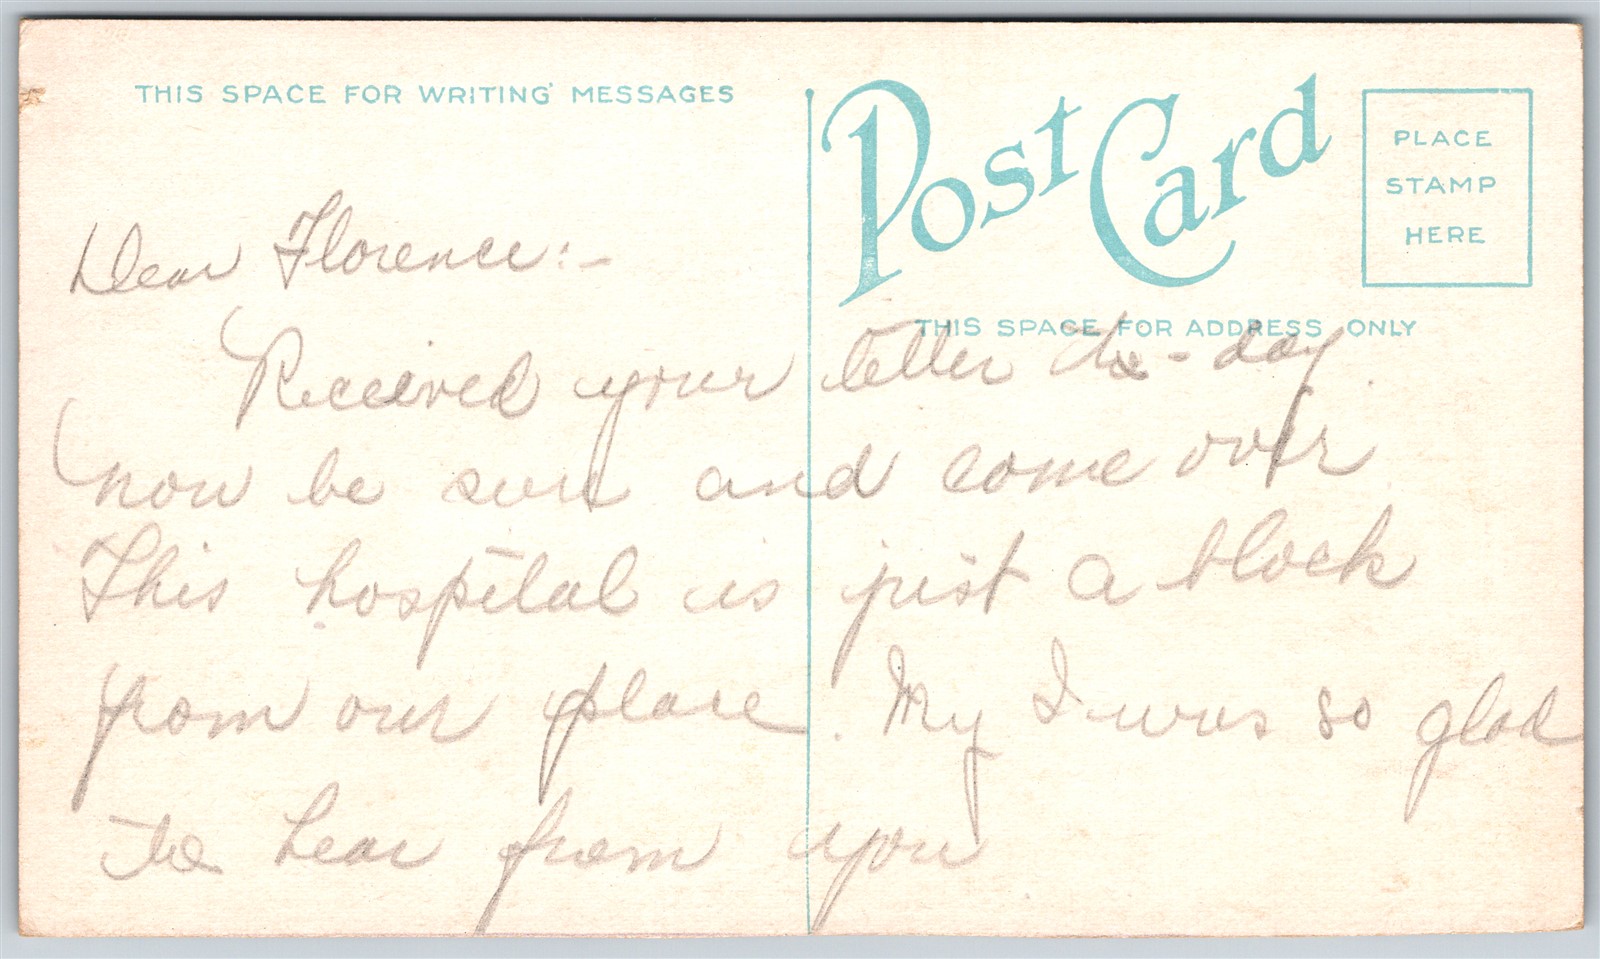 THIS SPACE FOR WRITING MESSAGES
Post Card
PLACE
STAMP
HERE
THIS SPACE FOR ADDRESS ONLY
Dear Florence:-
Received your letter to-day.
now be sure and come over
This hospital is just a block
from our place. My I was so glad
to hear from you